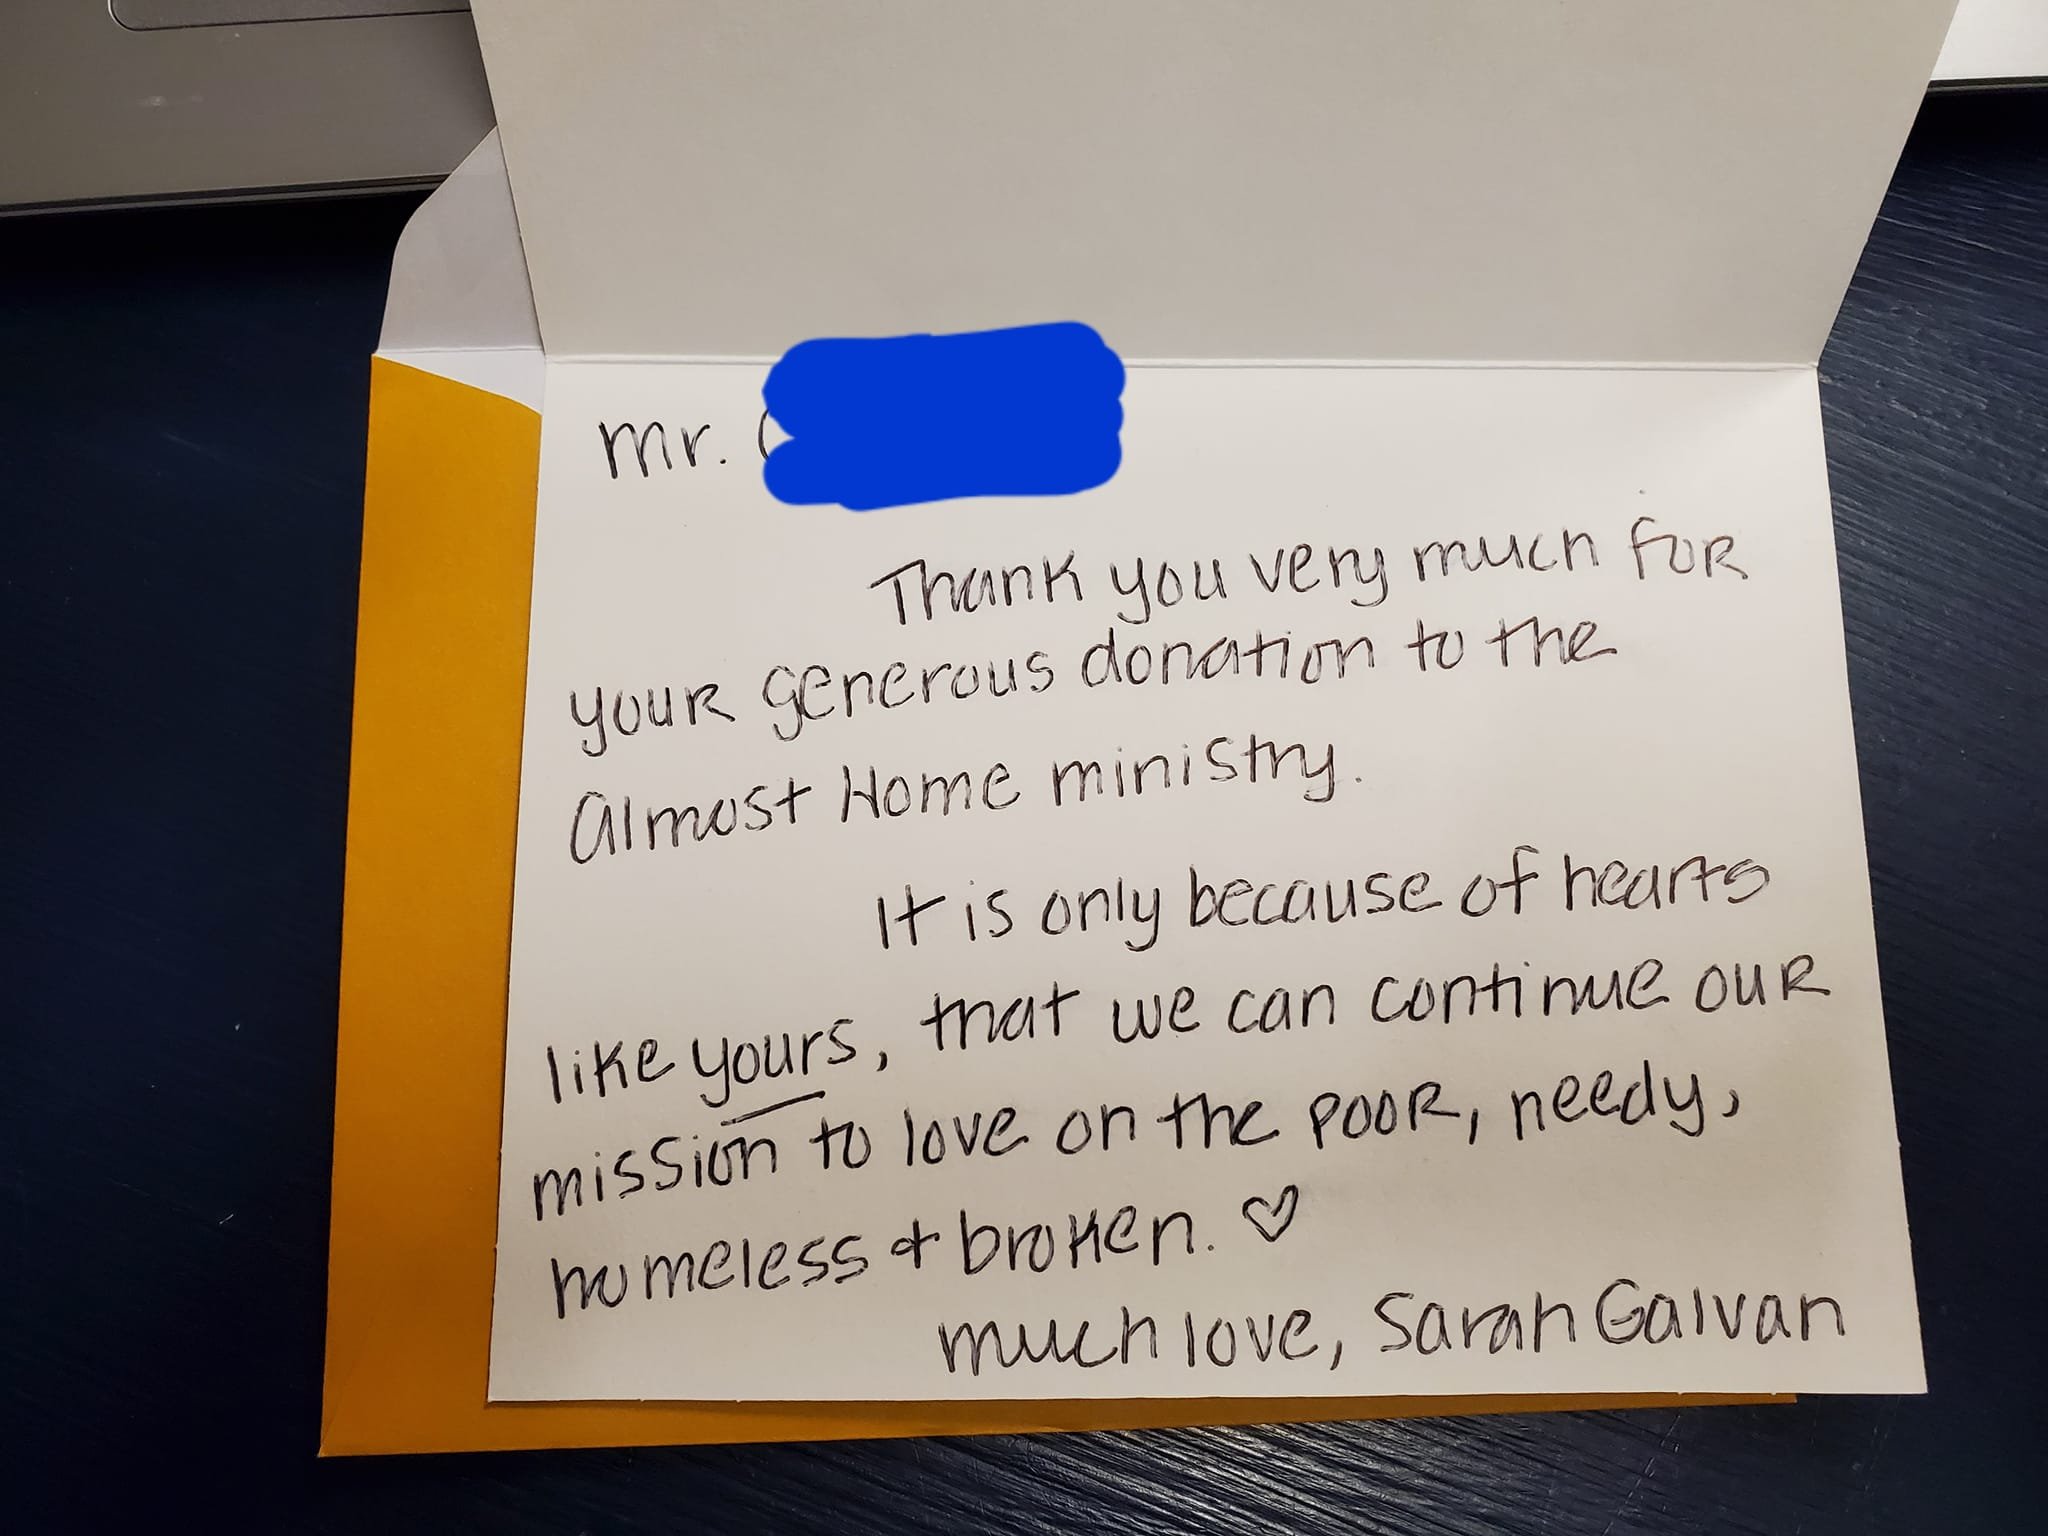 Mr.
Thank you very much for
your generous donation to the
Almost Home ministry.
It is only because of hearts
like yours, that we can continue our
mission to love on the poor, needy,
homeless & broken. ♡
much love, Sarah Galvan